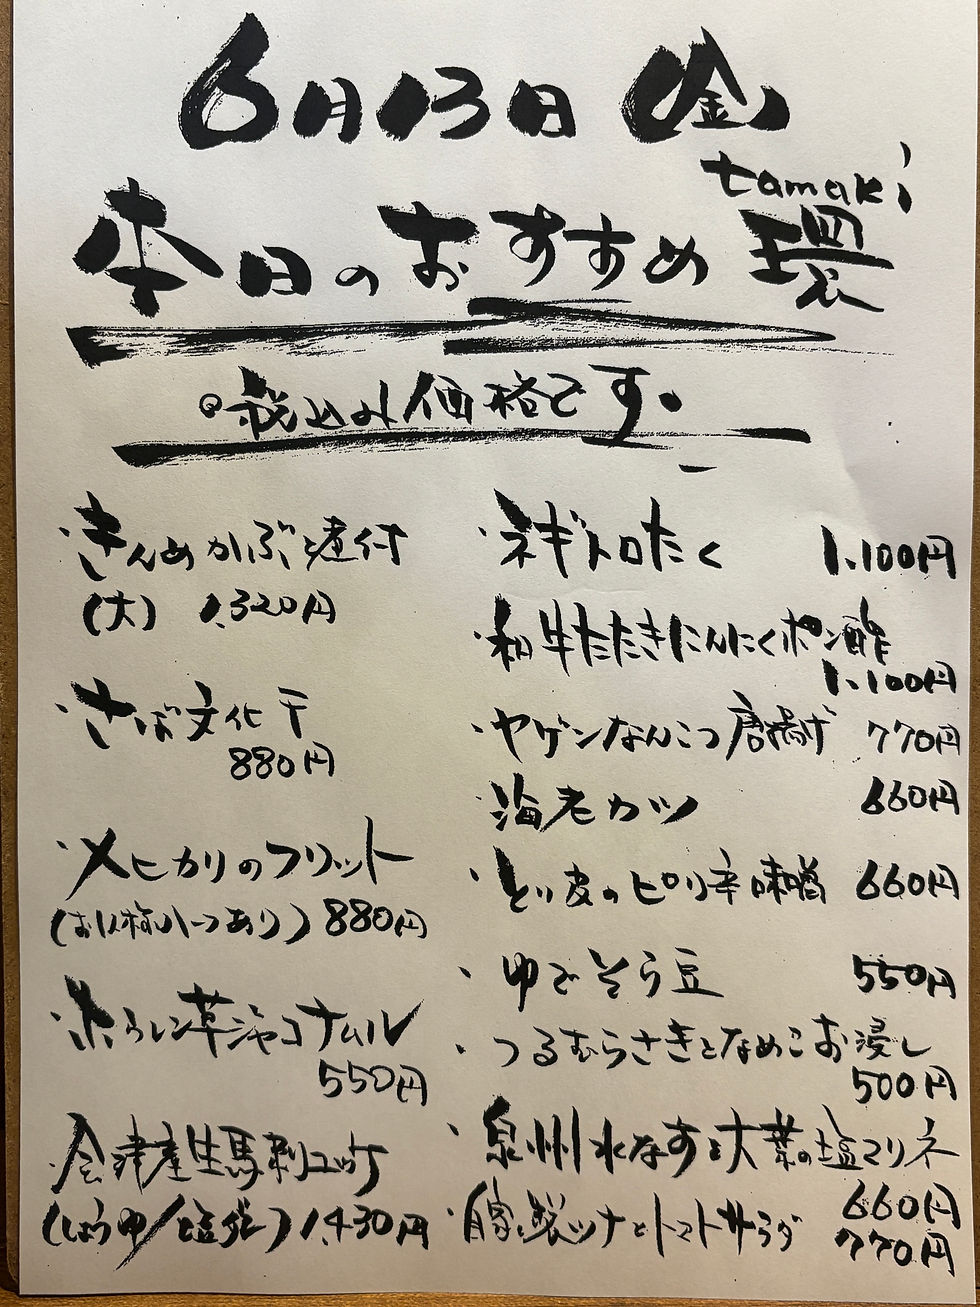 6月13日(金)
tamaki
本日のおすすめ 環
税込み価格です。
・きんめかぶと煮付
(大) 1,320円
・さば文化干
880円
・メヒカリのフリット
(お1人様ハーフあり) 880円
・ほうれん草ジャコナムル
550円
・会津産生馬刺ユッケ
(しょうゆ/塩ダレ) 1,430円
・ネギトロたく 1,100円
・和牛たたきにんにくポン酢
1,100円
・ヤゲンなんこつ唐揚げ 770円
・海老カツ 660円
・とり皮のピリ辛味噌 660円
・ゆでそら豆 550円
・つるむらさきとなめこお浸し
500円
・泉州水なすと大葉の塩マリネ
660円
・自家製ツナとトマトサラダ 770円